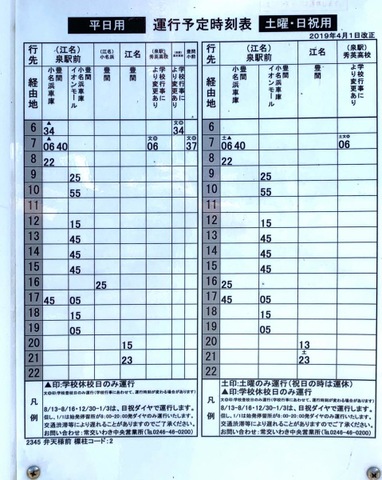 平日用 運行予定時刻表 土曜・日祝用
2019年4月1日改正
行先 (江名)泉駅前 (江名)小名浜 江名 (泉駅)秀英高校 豊間小前 行先 (江名)泉駅前 江名 (泉駅)秀英高校
経由地 小名浜車庫 豊間 イオンモール 豊間 豊間 学校行事により変更あり 学校行事により変更あり 経由地 小名浜車庫 豊間 イオンモール 豊間 豊間 学校行事により変更あり
6 ▲34 34 6
7 ▲06 40 06 37 7 土▲06 40 06
8 22 8 22
9 25 9 25
10 55 10 55
11 11
12 15 12 15
13 45 13 45
14 45 14 45
15 45 15 45
16 25 16 25
17 45 05 17 45 05
18 05 18 05
19 05 19 05
20 15 20 13
21 23 21 土23
22 22
凡例
▲印:学校休校日のみ運行
8/13-8/16・12/30-1/3は、日祝ダイヤで運行します。
但し、1/1は始発停留所が9:00-20:00発ダイヤのみ運行いたします。
交通渋滞等により遅れることがありますのでご了承ください。
お問い合わせ:常交いわき中央営業所 ℡0246-46-0200
凡例
土印:土曜のみ運行(祝日の時は運休)
▲印:学校休校日のみ運行
8/13-8/16・12/30-1/3は、日祝ダイヤで運行します。
但し、1/1は始発停留所が9:00-20:00発ダイヤのみ運行いたします。
交通渋滞等により遅れることがありますのでご了承ください。
お問い合わせ:常交いわき中央営業所 ℡0246-46-0200
2345 弁天様前 標柱コード:2